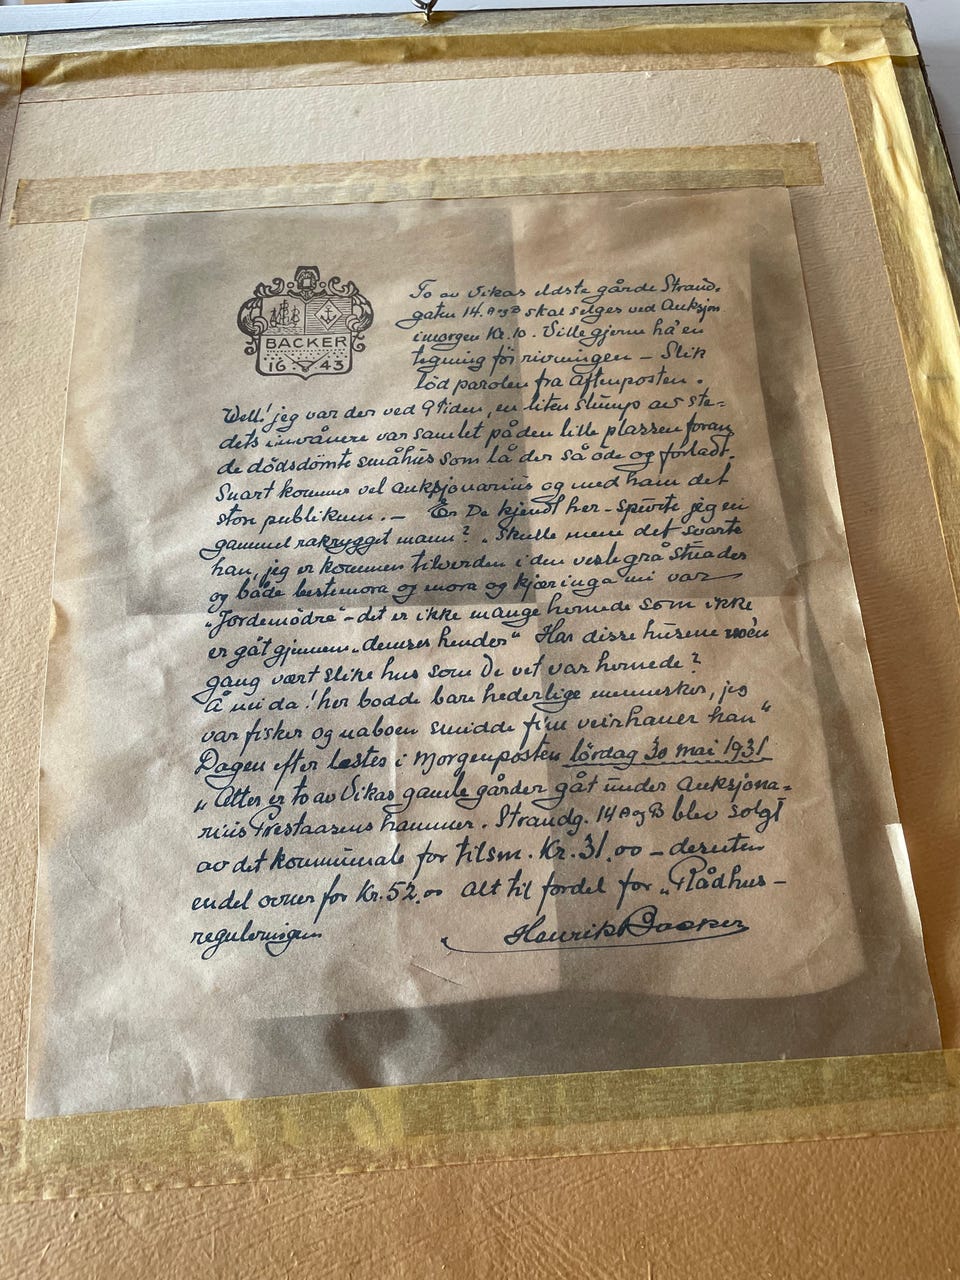 BACKER
16 43
To av Vikas eldste gårde Strand-
gaten 14. A og B skal selges ved Auksjon
imorgen Kl. 10. Ville gjerne ha en
tegning för rivningen – Slik
löd parolen fra Aftenposten.
Well! jeg var der ved 9 Tiden, en liten slump av ste-
dets invånere var samlet på den lille plassen foran
de dödsdömte småhus som lå der så öde og forladt.
Snart kommer vel auksjonarius og med ham det
store publikum. – Er De kjendt her – spurte jeg en
gammel rakrygget mann? „Skulle mene det svarte
han, jeg er kommen tilverden i den vesle grå
og både bestemora og mora og kjæringa mi var
„Jordemödre" – det er ikke mange hernede som ikke
er gåt gjennem „demses hender" Har disse husene noen
gang vært slike hus som De vet var hernede?
Å nei da! her bodde bare hederlige mennesker, jeg
var fisker og naboen smidde fine veirhaner han"
Dagen efter lestes i Morgenposten lördag 30 mai 1931
„Atter er to av Vikas gamle gårder gåt under Auksjona-
rius Prestaasens hammer. Strandg. 14 A og B blev solgt
av det kommunale for tilsm. Kr. 31.00 – desuten
endel ovner for Kr. 52.00 Alt til fordel for „Rådhus-
reguleringen
Henrik Backer